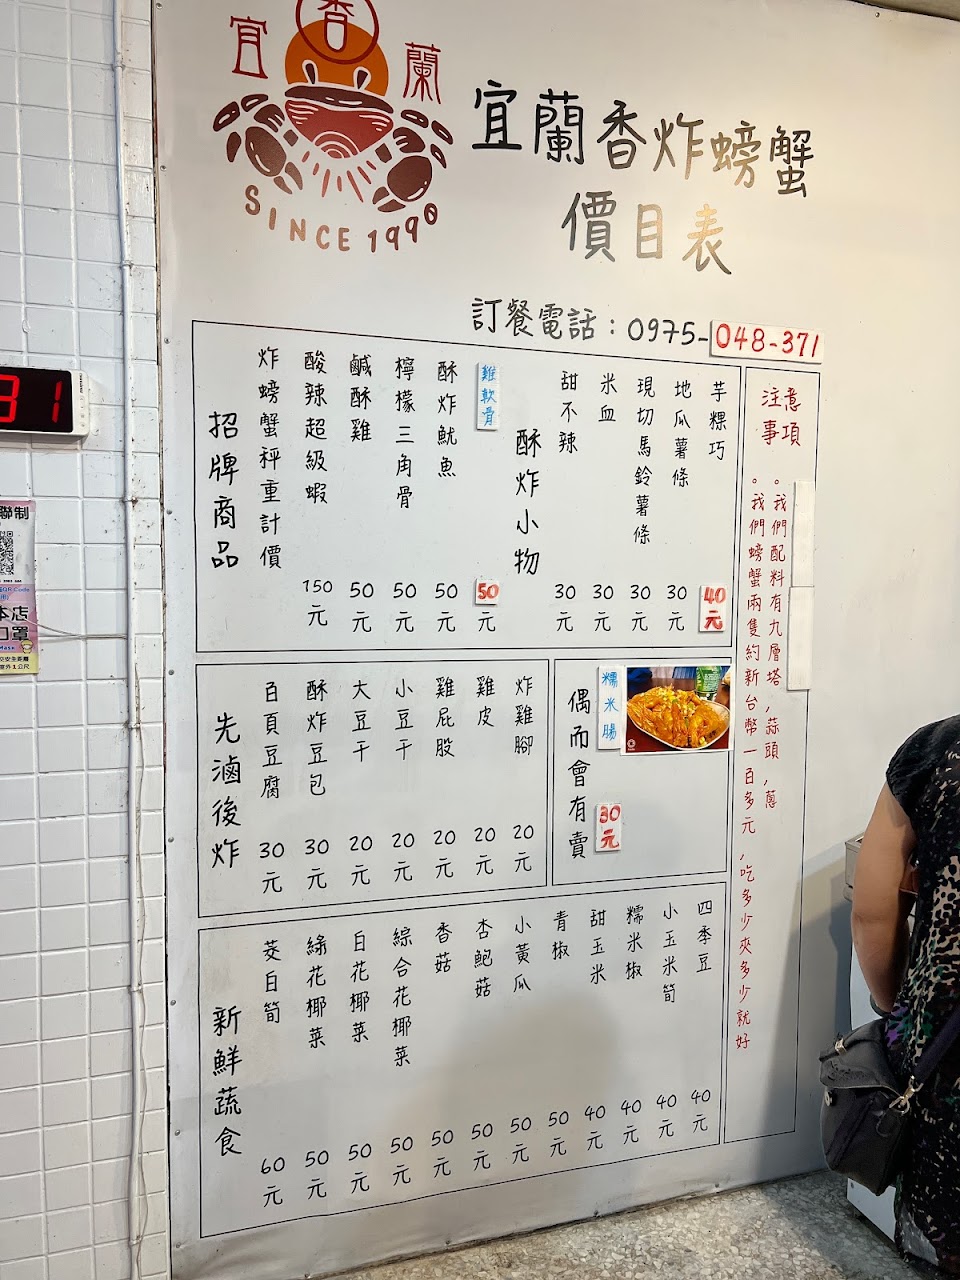 宜香蘭
SINCE 1990
宜蘭香炸螃蟹
價目表
訂餐電話：0975-048-371
招牌商品
炸螃蟹秤重計價
酸辣超級蝦 150元
鹹酥雞 50元
檸檬三角骨 50元
酥炸魷魚 50元
雞軟骨 50元
酥炸小物
甜不辣 30元
米血 30元
現切馬鈴薯條 30元
地瓜薯條 30元
芋粿巧 40元
先滷後炸
百頁豆腐 30元
酥炸豆包 30元
大豆干 20元
小豆干 20元
雞屁股 20元
雞皮 20元
炸雞腳 20元
偶而會有賣
糯米腸 30元
新鮮蔬食
茭白筍 60元
綠花椰菜 50元
白花椰菜 50元
綜合花椰菜 50元
香菇 50元
杏鮑菇 50元
小黃瓜 50元
青椒 50元
甜玉米 40元
糯米椒 40元
小玉米筍 40元
四季豆 40元
注意事項
。我們配料有九層塔,蒜頭,蔥
。我們螃蟹兩隻約新台幣一百多元,吃多少夾多少就好
31
聯制
QR Code
本店
口罩
Mask